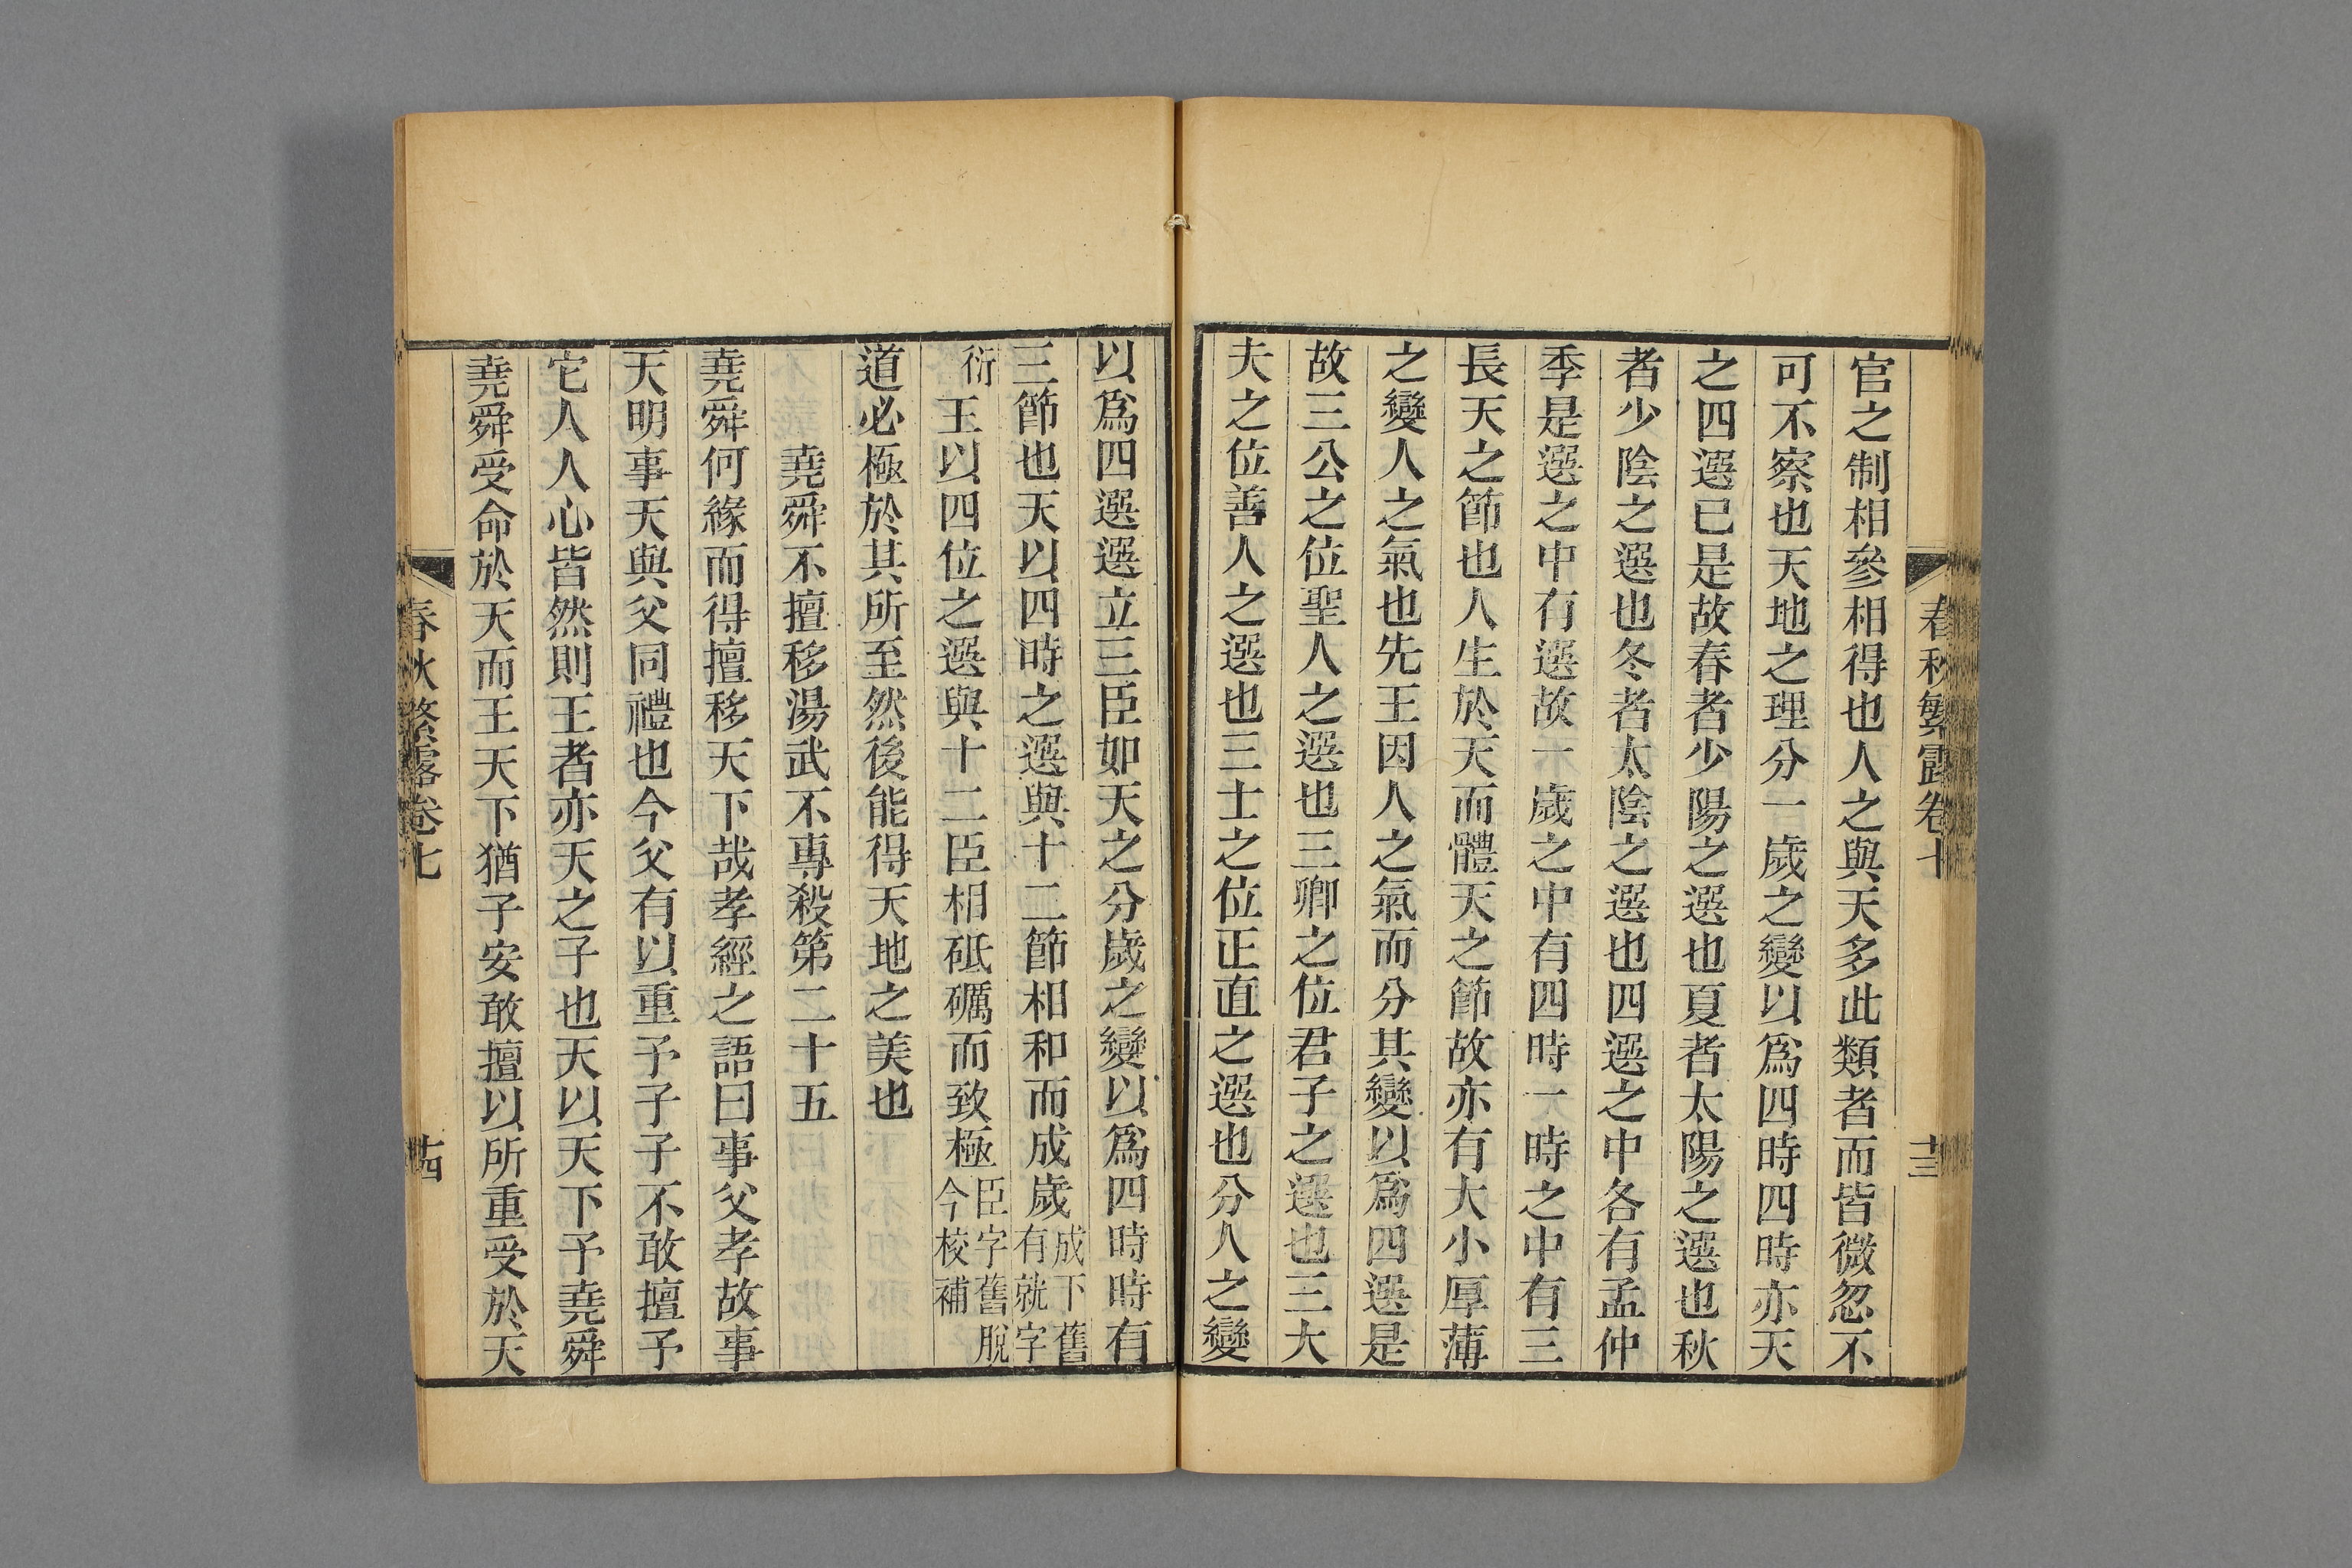 春秋繁露卷七
十三
官之制相參相得也人之與天多此類者而皆微忽不
可不察也天地之理分一歲之變以爲四時四時亦天
之四選已是故春者少陽之選也夏者太陽之選也秋
者少陰之選也冬者太陰之選也四選之中各有孟仲
季是選之中有選故一歲之中有四時一時之中有三
長天之節也人生於天而體天之節故亦有大小厚薄
之變人之氣也先王因人之氣而分其變以爲四選是
故三公之位聖人之選也三卿之位君子之選也三大
夫之位善人之選也三士之位正直之選也分人之變
以爲四選選立三臣如天之分歲之變以爲四時時有
三節也天以四時之選與十二節相和而成歲成下舊有就字
衍王以四位之選與十二臣相砥礪而致極臣字舊脫今校補
道必極於其所至然後能得天地之美也
堯舜不擅移湯武不專殺第二十五
堯舜何緣而得擅移天下哉孝經之語曰事父孝故事
天明事天與父同禮也今父有以重予子子不敢擅予
它人人心皆然則王者亦天之子也天以天下予堯舜
堯舜受命於天而王天下猶子安敢擅以所重受於天
春秋繁露卷七
十四